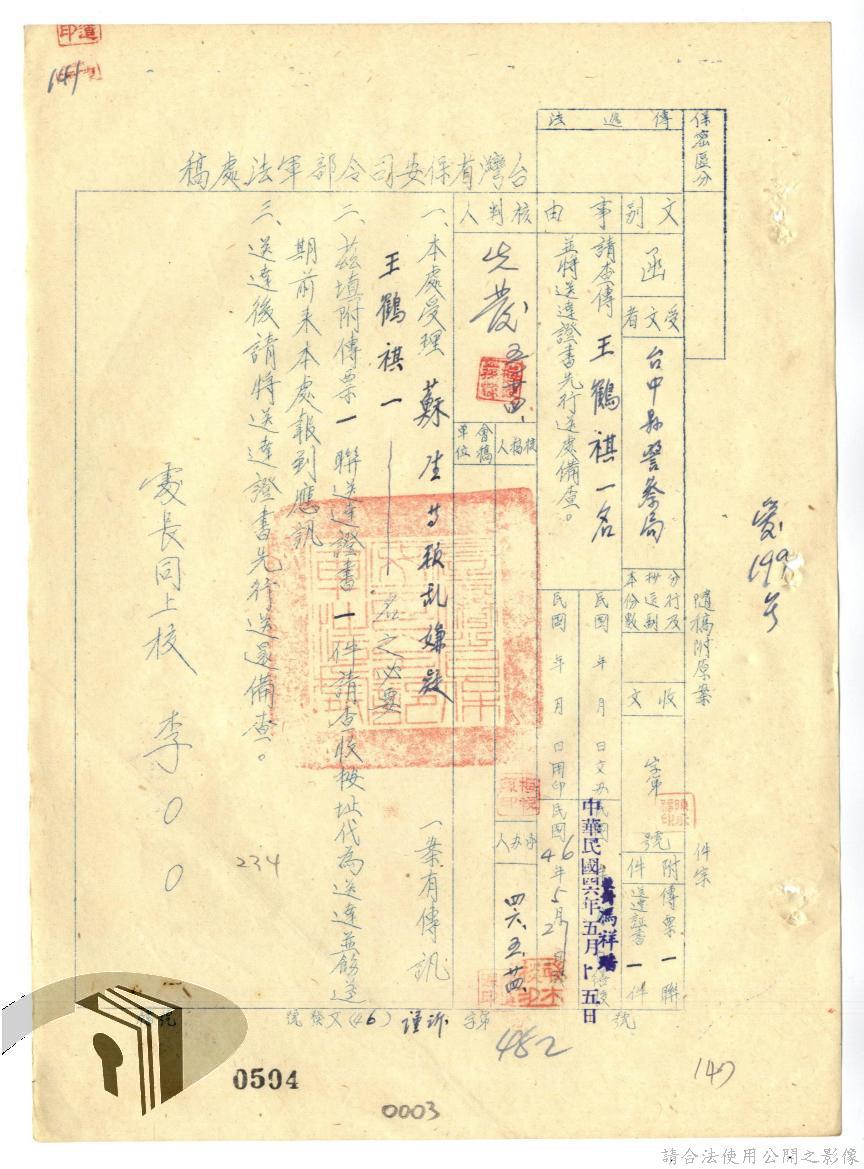 台灣省保安司令部軍法處稿
保密區分
傳遞法
文別
函
受文者
台中縣警察局
分行及抄送副本份數
收文
字第
號
附件
傳票一聯
送達證書一件
事由
請查傳王鶴祺一名
並將送達證書先行送處備查。
民國 年 月 日交办
民國 年 月 日用印
民國46年5月2
中華民國四六年五月十五日
馮祥瑞
核判人
先發
五廿四、
核稿人
會稿單位
承办人
四六、五、廿四
一、本處受理蘇生等叛乱嫌疑一案有傳訊
王鶴祺一——名之必要
二、茲填附傳票一聯送達證書一件請查收按址代為送達並飭遵
期前來本處報到應訊
三、送達後請將送達證書先行送還備查。
處長同上校 李○○
隨稿附原案 件宗
愛199号
(46)發文 號
字第 號
482
234
147
141
0504
0003
請合法使用公開之影像